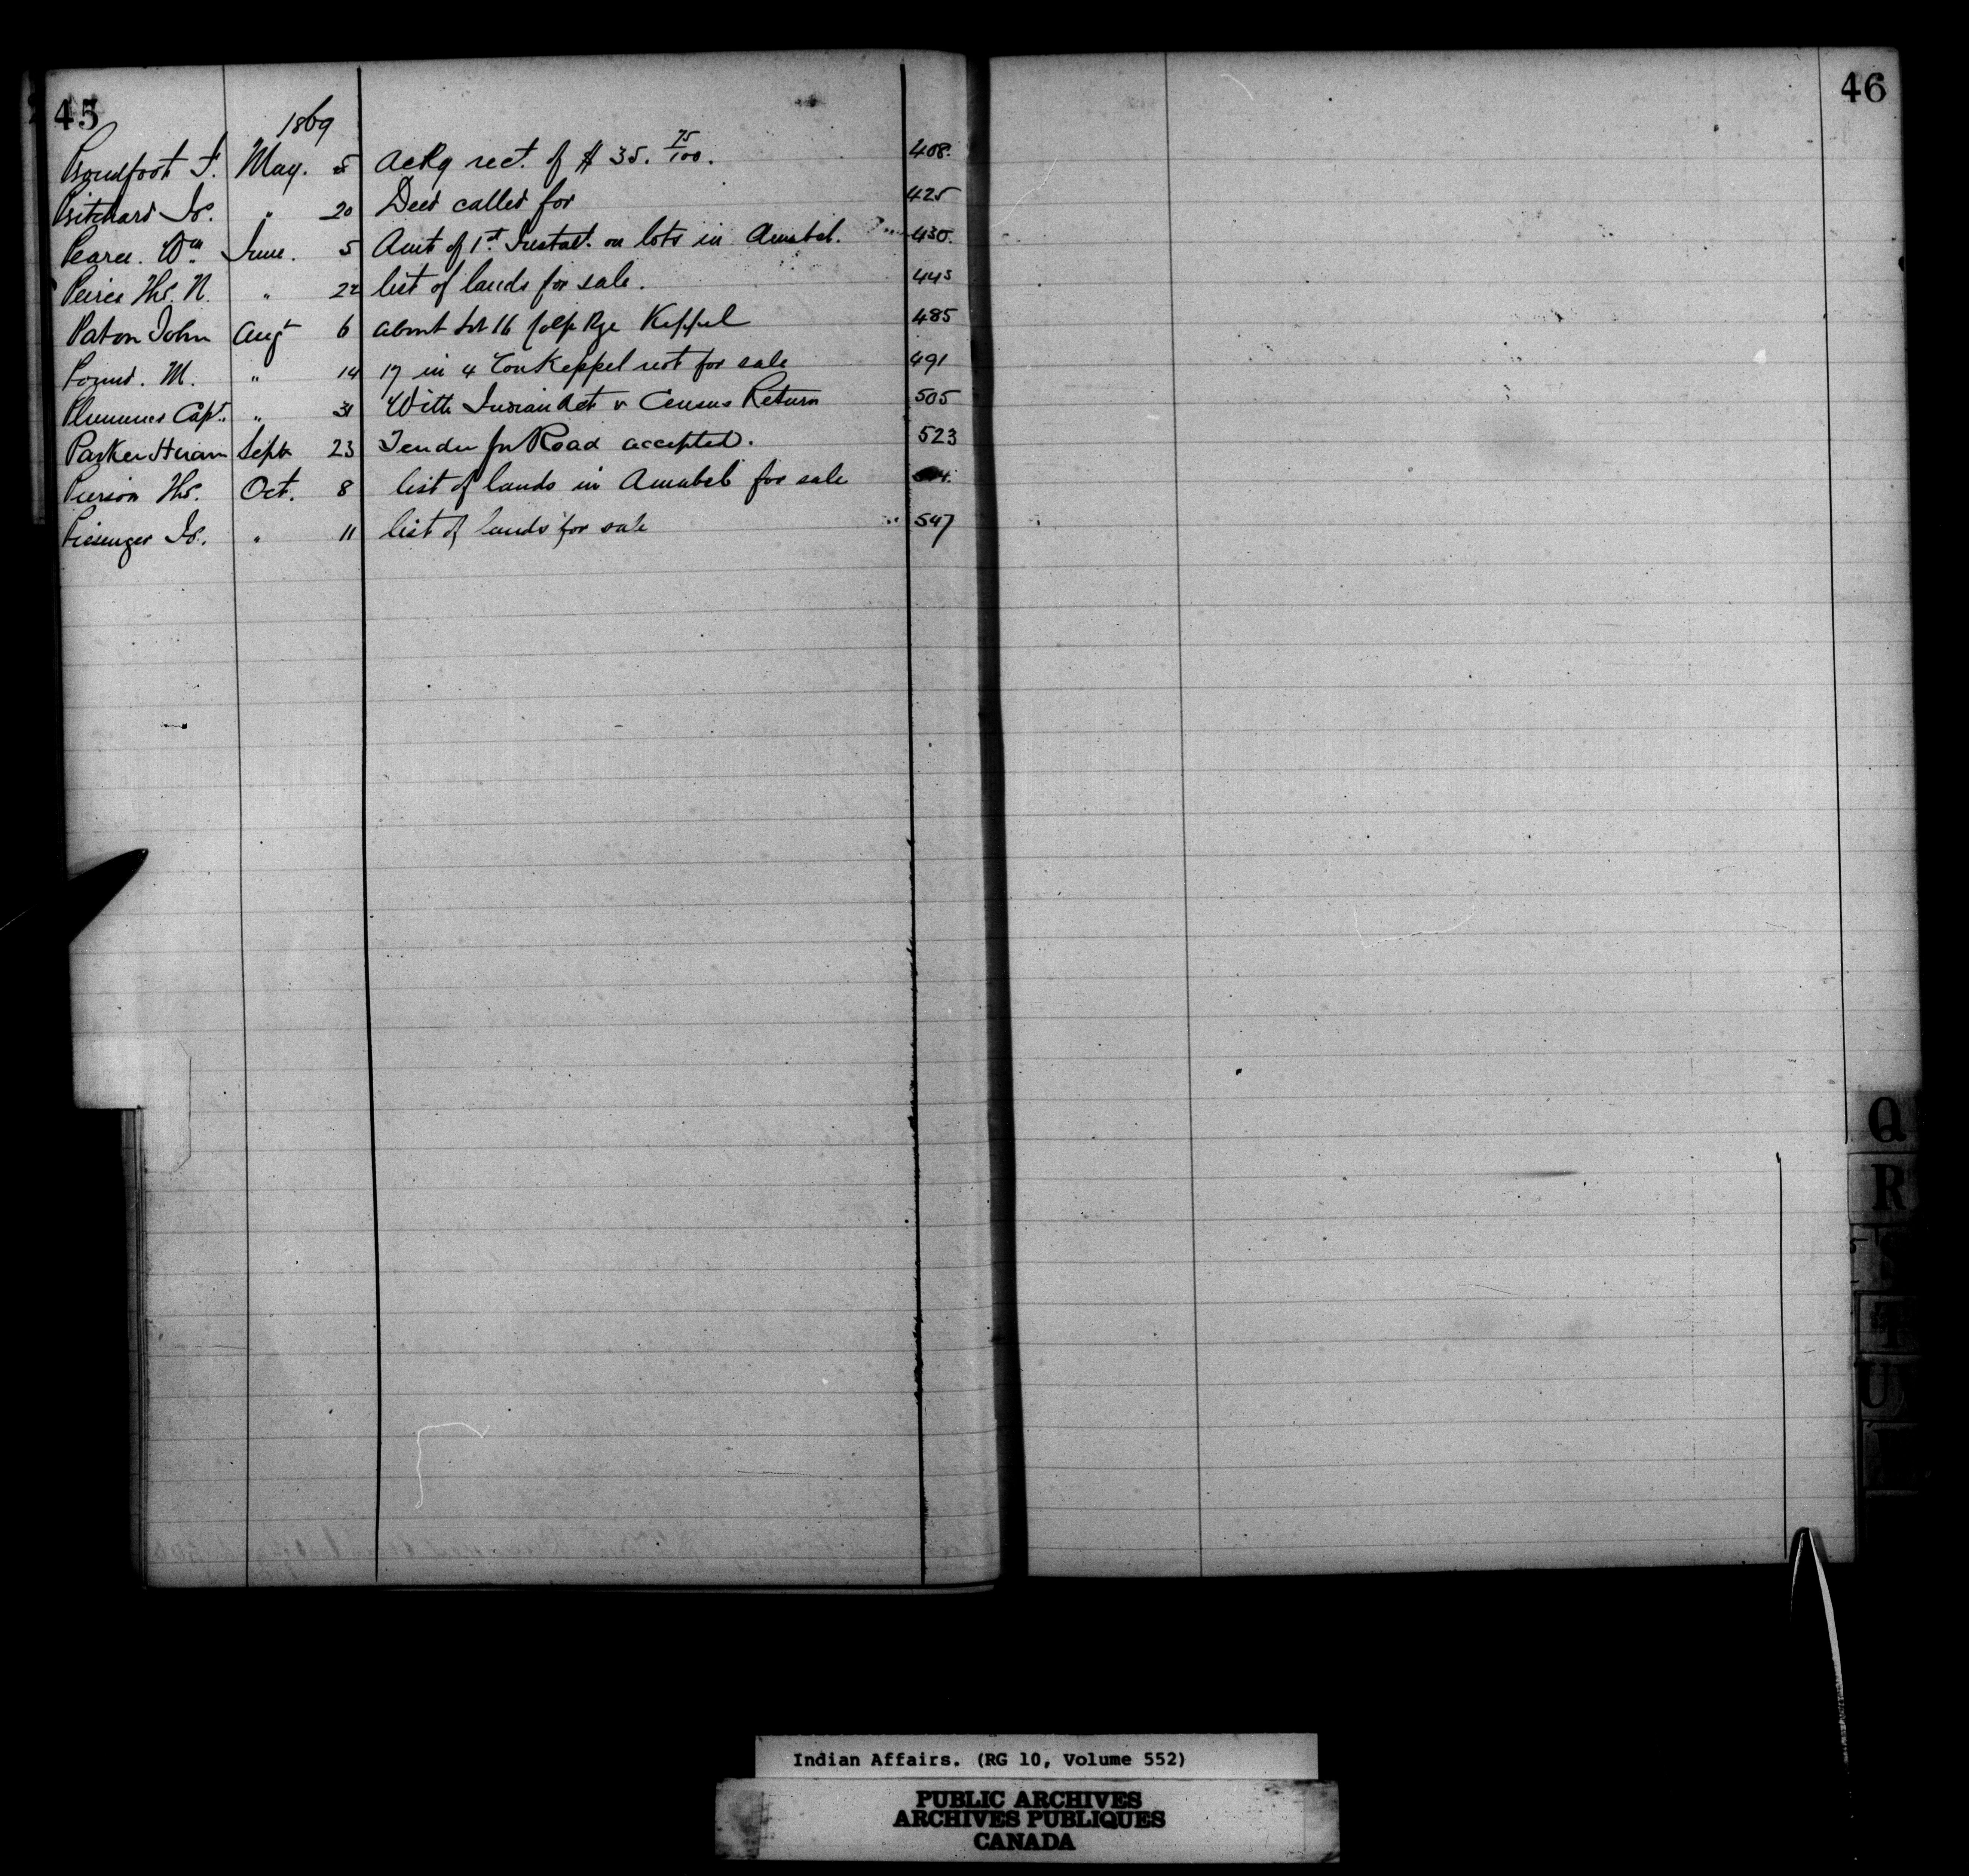 45
1869
Proudfoot F. May. 5 Ackg rect. of $ 35. 75/100. 408.
Pritchard Js. " 20 Deed called for 425
Pearce. Wm June. 5 Amt of 1st Instalt. on lots in Amabel. 430.
Peirce Ths. N. " 22 list of lands for sale. 445
Paton John Augt 6 about Lot 16 Rge Keppel 485
Pound. M. " 14 17 in 4 Con Keppel not for sale 491
Plummer Capt. " 31 With Indian Act & Census Return 505
Parker Hiram Septr 23 Tender for Road accepted. 523
Pierson Ths. Oct. 8 list of lands in Amabel for sale
Js. " 11 list of lands for sale 547
46
Q
R
T
U
Indian Affairs. (RG 10, Volume 552)
PUBLIC ARCHIVES
ARCHIVES PUBLIQUES
CANADA